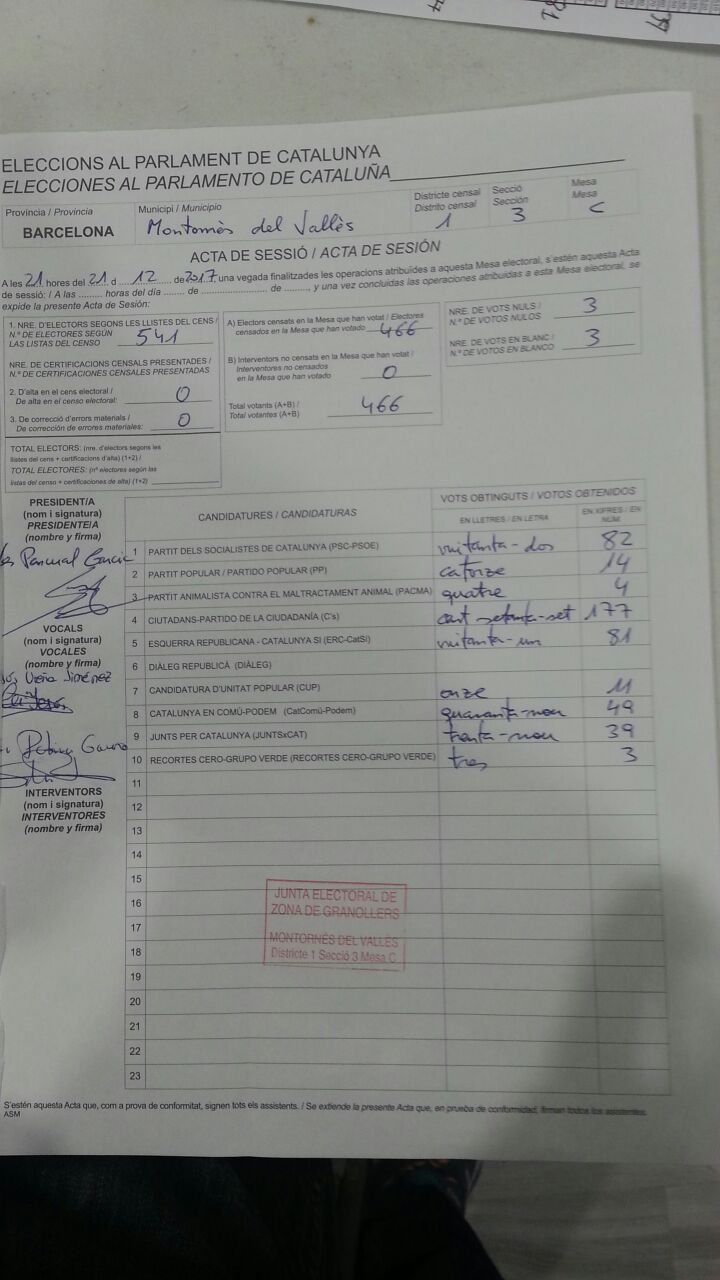 ELECCIONS AL PARLAMENT DE CATALUNYA
ELECCIONES AL PARLAMENTO DE CATALUÑA
Província / Provincia
BARCELONA
Municipi / Municipio
Montornès del Vallès
Districte censal
Distrito censal
1
Secció
Sección
3
Mesa
Mesa
C
ACTA DE SESSIÓ / ACTA DE SESIÓN
A les 21 hores del 21 d 12 de 2017, una vegada finalitzades les operacions atribuïdes a aquesta Mesa electoral, s'estén aquesta Acta
de sessió: / A las ......... horas del día ....... de ...................... de ........, y una vez concluidas las operaciones atribuidas a esta Mesa electoral, se
expide la presente Acta de Sesión:
1. NRE. D'ELECTORS SEGONS LES LLISTES DEL CENS /
N.º DE ELECTORES SEGÚN
LAS LISTAS DEL CENSO 541
NRE. DE CERTIFICACIONS CENSALS PRESENTADES /
N.º DE CERTIFICACIONES CENSALES PRESENTADAS
2. D'alta en el cens electoral /
De alta en el censo electoral: 0
3. De correcció d'errors materials /
De corrección de errores materiales: 0
TOTAL ELECTORS: (nre. d'electors segons les
llistes del cens + certificacions d'alta) (1+2) /
TOTAL ELECTORES: (nº electores según las
listas del censo + certificaciones de alta) (1+2)
A) Electors censats en la Mesa que han votat / Electores
censados en la Mesa que han votado 466
B) Interventors no censats en la Mesa que han votat /
Interventores no censados
en la Mesa que han votado 0
Total votants (A+B) /
Total votantes (A+B) 466
NRE. DE VOTS NULS /
N.º DE VOTOS NULOS 3
NRE. DE VOTS EN BLANC /
N.º DE VOTOS EN BLANCO 3
PRESIDENT/A
(nom i signatura)
PRESIDENTE/A
(nombre y firma)
Pascual García
VOCALS
(nom i signatura)
VOCALES
(nombre y firma)
Jiménez
INTERVENTORS
(nom i signatura)
INTERVENTORES
(nombre y firma)
CANDIDATURES / CANDIDATURAS
VOTS OBTINGUTS / VOTOS OBTENIDOS
EN LLETRES / EN LETRA
EN XIFRES / EN NÚM.
1 PARTIT DELS SOCIALISTES DE CATALUNYA (PSC-PSOE) vuitanta-dos 82
2 PARTIT POPULAR / PARTIDO POPULAR (PP) catorze 14
3 PARTIT ANIMALISTA CONTRA EL MALTRACTAMENT ANIMAL (PACMA) quatre 4
4 CIUTADANS-PARTIDO DE LA CIUDADANÍA (C's) cent setanta-set 177
5 ESQUERRA REPUBLICANA - CATALUNYA SI (ERC-CatSI) vuitanta-un 81
6 DIÀLEG REPUBLICÀ (DIÀLEG)
7 CANDIDATURA D'UNITAT POPULAR (CUP) onze 11
8 CATALUNYA EN COMÚ-PODEM (CatComú-Podem) quaranta-nou 49
9 JUNTS PER CATALUNYA (JUNTSxCAT) trenta-nou 39
10 RECORTES CERO-GRUPO VERDE (RECORTES CERO-GRUPO VERDE) tres 3
11
12
13
14
15
16
17
18
19
20
21
22
23
JUNTA ELECTORAL DE
ZONA DE GRANOLLERS
MONTORNÉS DEL VALLÈS
Districte 1 Secció 3 Mesa C
S'estén aquesta Acta que, com a prova de conformitat, signen tots els assistents. / Se extiende la presente Acta que, en prueba de conformidad, firman todos los asistentes.
ASM